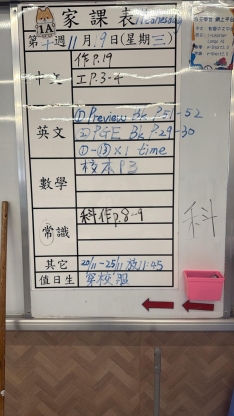 1A
家課表 Wednesday
第十週 11月9日(星期三)
中文 作P.19
工P.3-4
英文 ① Preview Bk P.51-52
② PGE Bk P.29-30
①-⑬ x 1 time
數學 校本P3
常識 科作p.8-9
其它 20/11-25/11 放11:45
值日生 穿校服
科